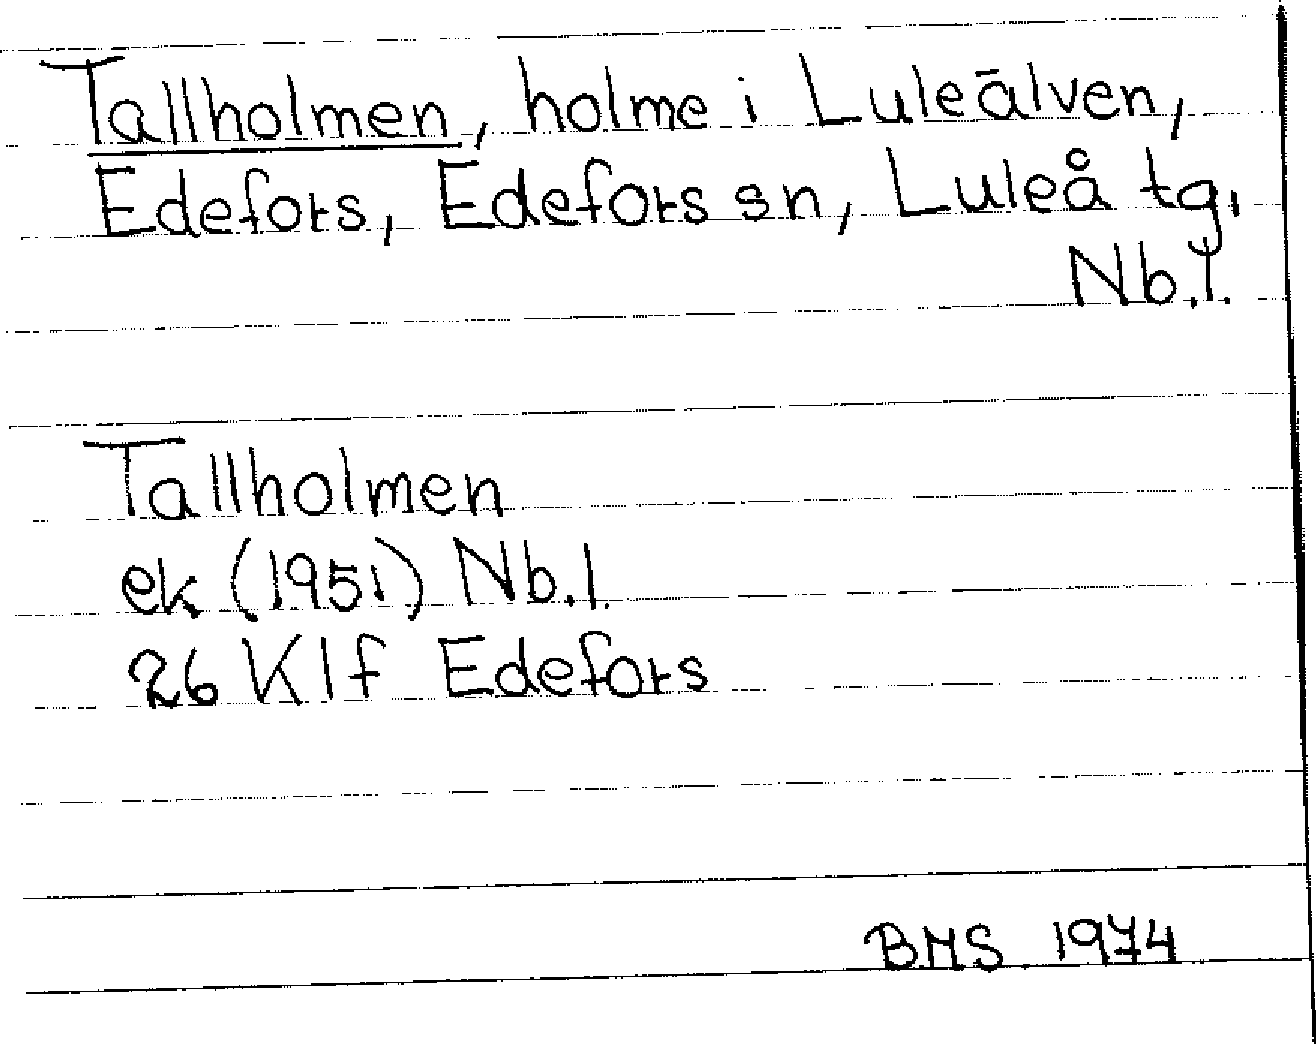 Tallholmen, holme i Luleälven,
Edefors, Edefors sn, Luleå tg,
Nb.l.
Tallholmen
ek (1951) Nb.l.
26 Klf Edefors
BMS 1974